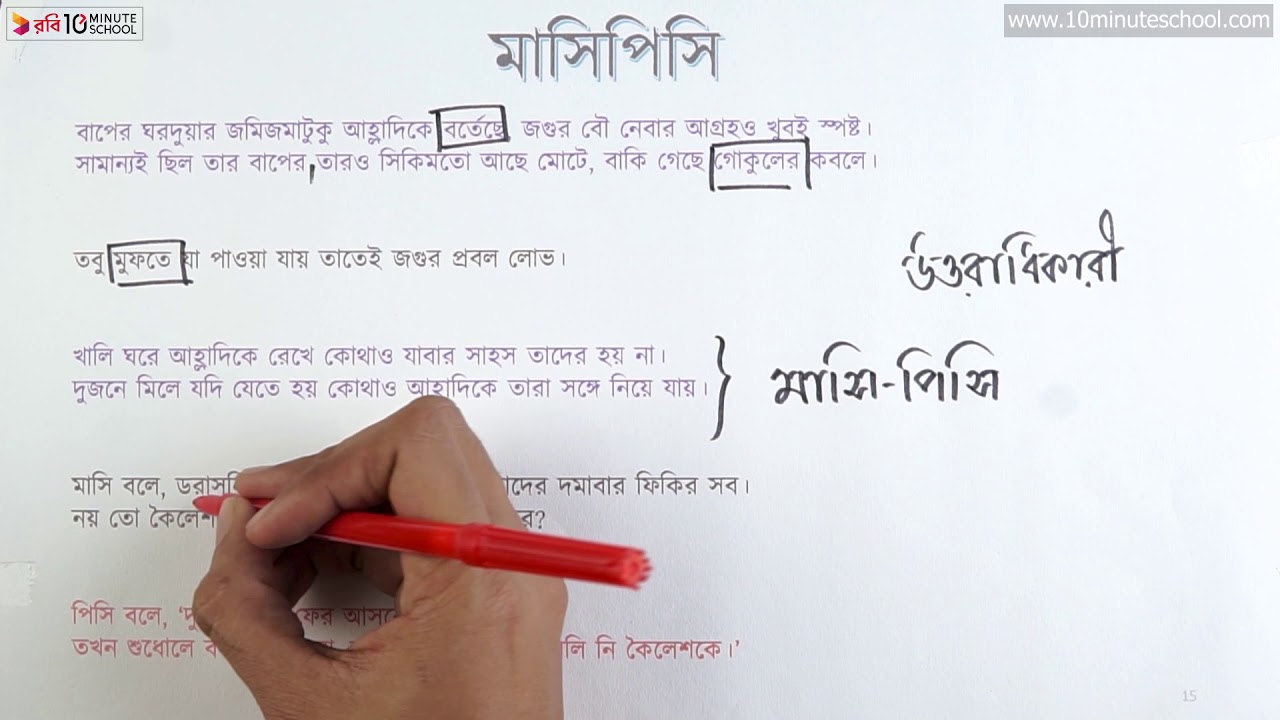 রবি 10 MINUTE SCHOOL
www.10minuteschool.com
মাসিপিসি
বাপের ঘরদুয়ার জমিজমাটুকু আহ্লাদিকে বর্তেছে জগুর বৌ নেবার আগ্রহও খুবই স্পষ্ট।
সামান্যই ছিল তার বাপের, তারও সিকিমতো আছে মোটে, বাকি গেছে গোকুলের কবলে।
তবু মুফতে যা পাওয়া যায় তাতেই জগুর প্রবল লোভ।
উত্তরাধিকারী
খালি ঘরে আহ্লাদিকে রেখে কোথাও যাবার সাহস তাদের হয় না।
দুজনে মিলে যদি যেতে হয় কোথাও আহ্লাদিকে তারা সঙ্গে নিয়ে যায়।
মাসি-পিসি
মাসি বলে, দমাবার ফিকির সব।
নয় তো
পিসি বলে,
তখন শুধোলে নি কৈলেশকে।’
15